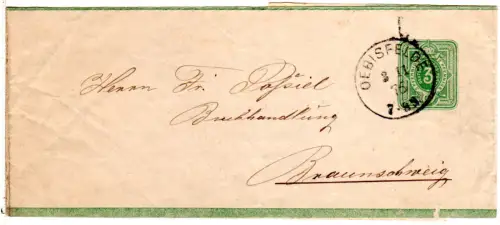 OEBISFELDE
7-8 N
3
Herrn Fr. Possiel
Buchhandlung
Braunschweig